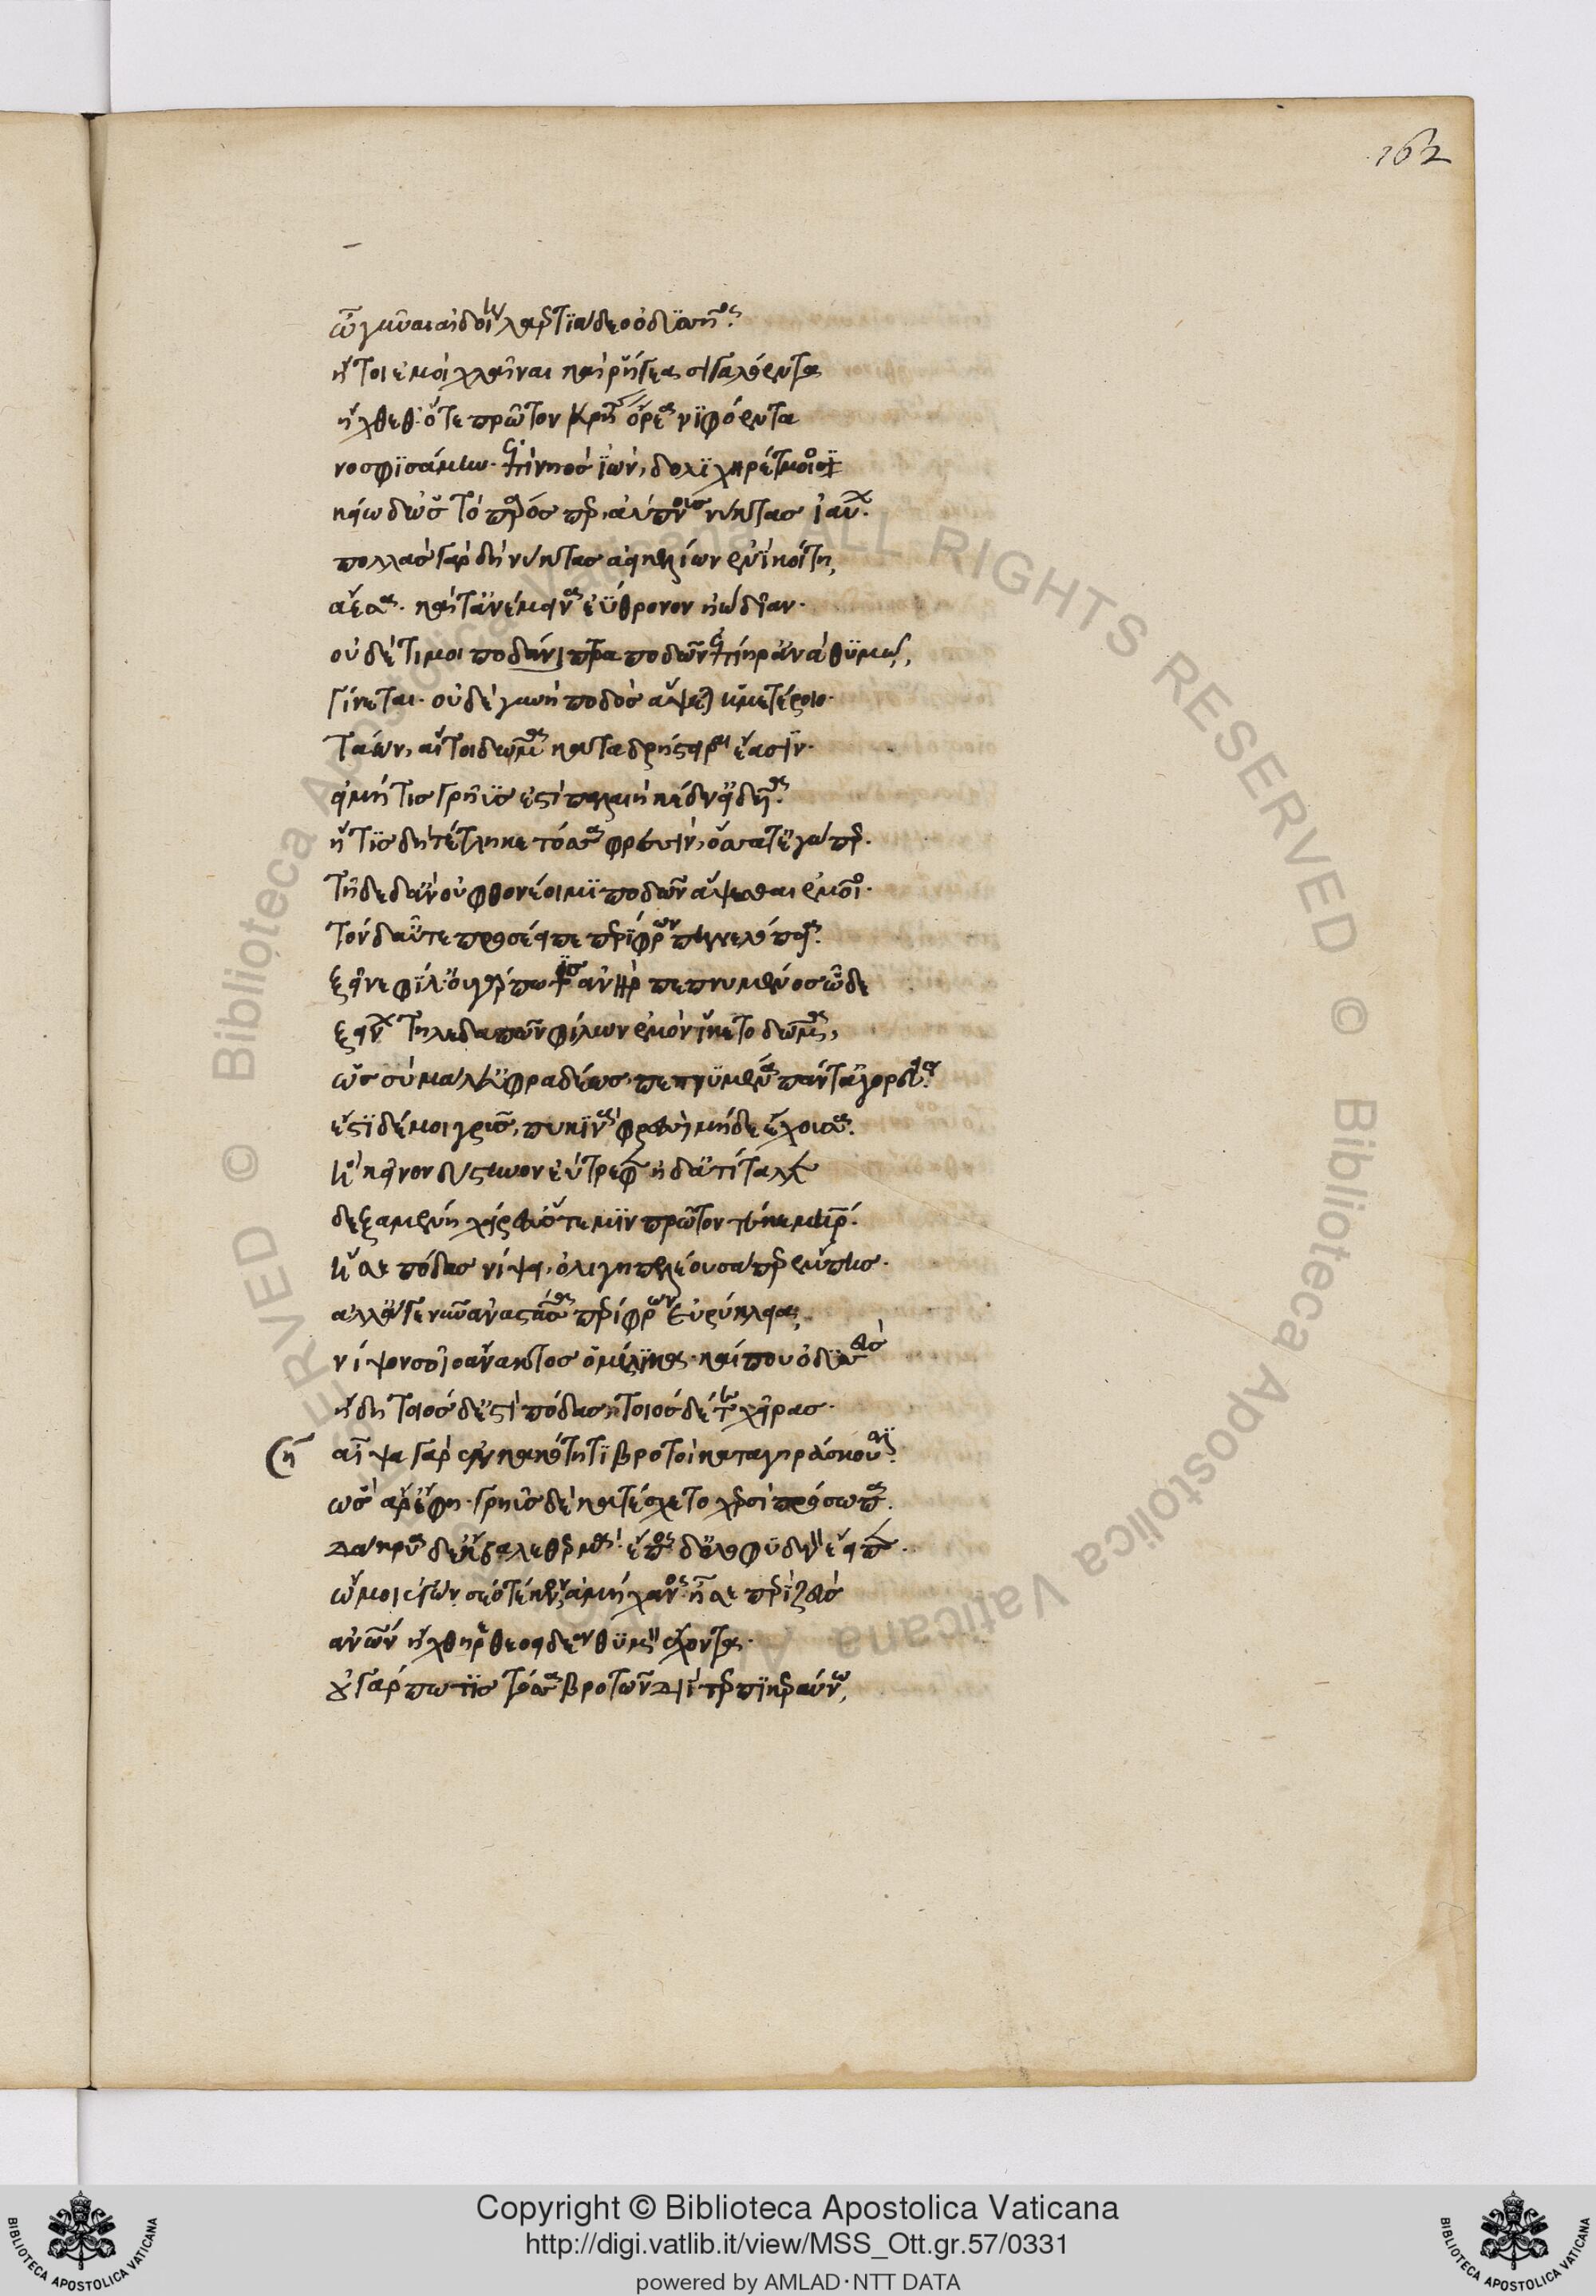 162
ὦ γύναι αἰδοίη λαερτιάδεω ὀδυσῆος.
ἤτοι ἐμοὶ χλαῖναι καὶ ῥήγεα σιγαλόεντα
ἤχθεθ' ὅτε πρῶτον κρήτης ὄρεα νιφόεντα
νοσφισάμην. ἐπὶ νηὸς ἰὼν, δολιχηρέτμοιο
κείω δ' ὡς τὸ πάρος περ, ἀύπνους νύκτας ἴαυον.
πολλὰς γὰρ δὴ νύκτας ἀεικελίω ἐνὶ κοίτη,
ἄεσα. καί τ' ἀνέμεινα ἐΰθρονον ἠῶ δῖαν.
οὐδέ τι μοι ποδάνιπτρα ποδῶν ἐπιήρανα θυμῶ,
γίνεται. οὐδὲ γυνὴ ποδὸς ἅψεται ἡμετέροιο.
τάων, αἵ τοι δῶμα κάτα δρήστειραι ἔασιν.
εἰ μή τις γρηῢς ἐστὶ παλαιὴ κέδν' εἰδυῖα.
ἥτις δὴ τέτληκε τόσα φρεσὶν, ὅσσα τ' ἐγώ περ.
τῆδε δ' ἂν οὐ φθονέοιμι ποδῶν ἅψασθαι ἐμοῖο.
τὸν δ' αὖτε προσέειπε περίφρων πηνελόπεια.
ξεῖνε φίλ' οὐ γάρ πώ τις ἀνὴρ πεπνυμένος ὧδε
ξείνων τηλεδαπῶν φιλίων ἐμὸν ἵκετο δῶμα,
ὡς σὺ μάλ' εὐφραδέως, πεπνυμένα πάντ' ἀγορεύεις.
ἔστι δέ μοι γρηῦς, πυκινὰ φρεσὶ μήδε' ἔχουσα.
ἣ κεῖνον δύστηνον ἐὺ τρέφεν ἠδ' ἀτίταλλε
δεξαμένη χείρεσσ' ὅτε μιν πρῶτον τέκε μήτηρ.
ἥ σε πόδας νίψει, ὀλιγηπελέουσά περ ἔμπης.
ἀλλ' ἄγε νῦν ἀναστᾶσα περίφρων εὐρύκλεια,
νίψον σοῖο ἄνακτος ὁμήλικα. καί που ὀδυσσεὺς
ἤδη τοιόσδ' ἐστὶ πόδας τοιόσδέ τε χεῖρας.
αἶψα γὰρ ἐν κακότητι βροτοὶ καταγηράσκουσι.
ὣς ἄρ' ἔφη. γρηῢς δὲ κατέσχετο χερσὶ πρόσωπα.
δάκρυα δ' ἔκβαλε θερμά. ἔπος δ' ὀλοφυδνὸν ἔειπεν.
ὤ μοι ἐγὼν σέο τέκνον ἀμήχανος. ἦ σε περὶ ζεὺς
ἀνθρώπων ἤχθηρε θεουδέα θυμὸν ἔχοντα.
οὐ γάρ πώ τις τόσα βροτῶν διὶ τερπικεραύνω,
Copyright © Biblioteca Apostolica Vaticana
http://digi.vatlib.it/view/MSS_Ott.gr.57/0331
powered by AMLAD·NTT DATA